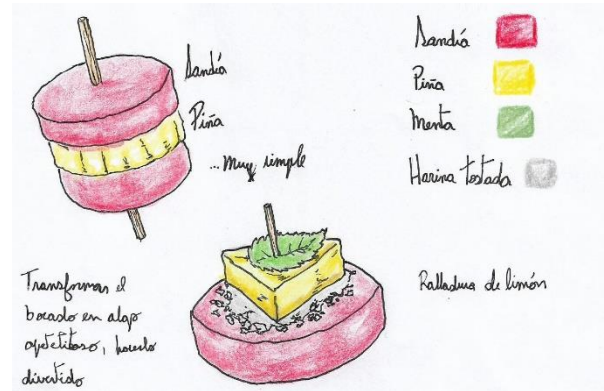 Sandía
Piña
...muy simple
Sandía
Piña
Menta
Harina tostada
Transformar el
bocado en algo
apetitoso, hacerlo
divertido
Ralladura de limón